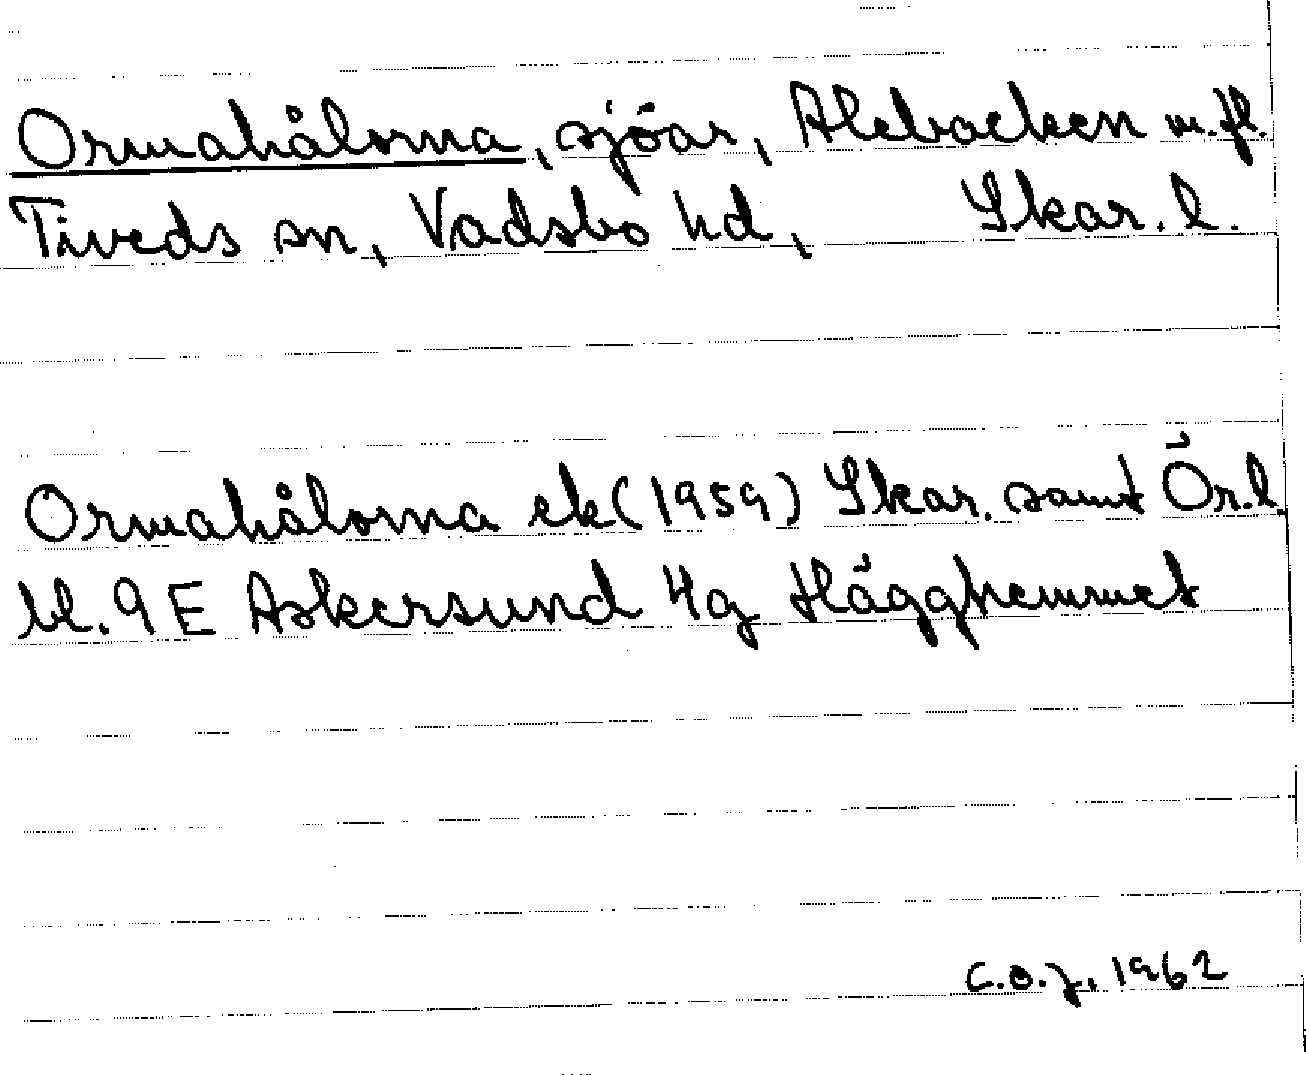 Ormahålorna, sjöar, Alebacken m.fl.
Tiveds sn, Vadsbo hd, Skar. l.
Ormahålorna ek (1959) Skar. samt Ör. l.
bl. 9E Askersund 4g Hägghemmet
C.O.J. 1962